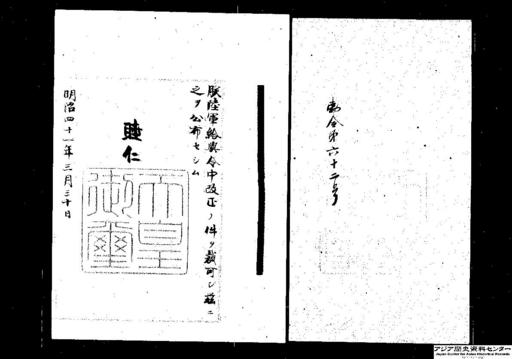 勅令第六十二号
朕陸軍給與令中改正ノ件ヲ裁可シ茲ニ
之ヲ公布セシム
睦仁
天皇御璽
明治四十一年三月三十日
アジア歴史資料センター
Japan Center for Asian Historical Records